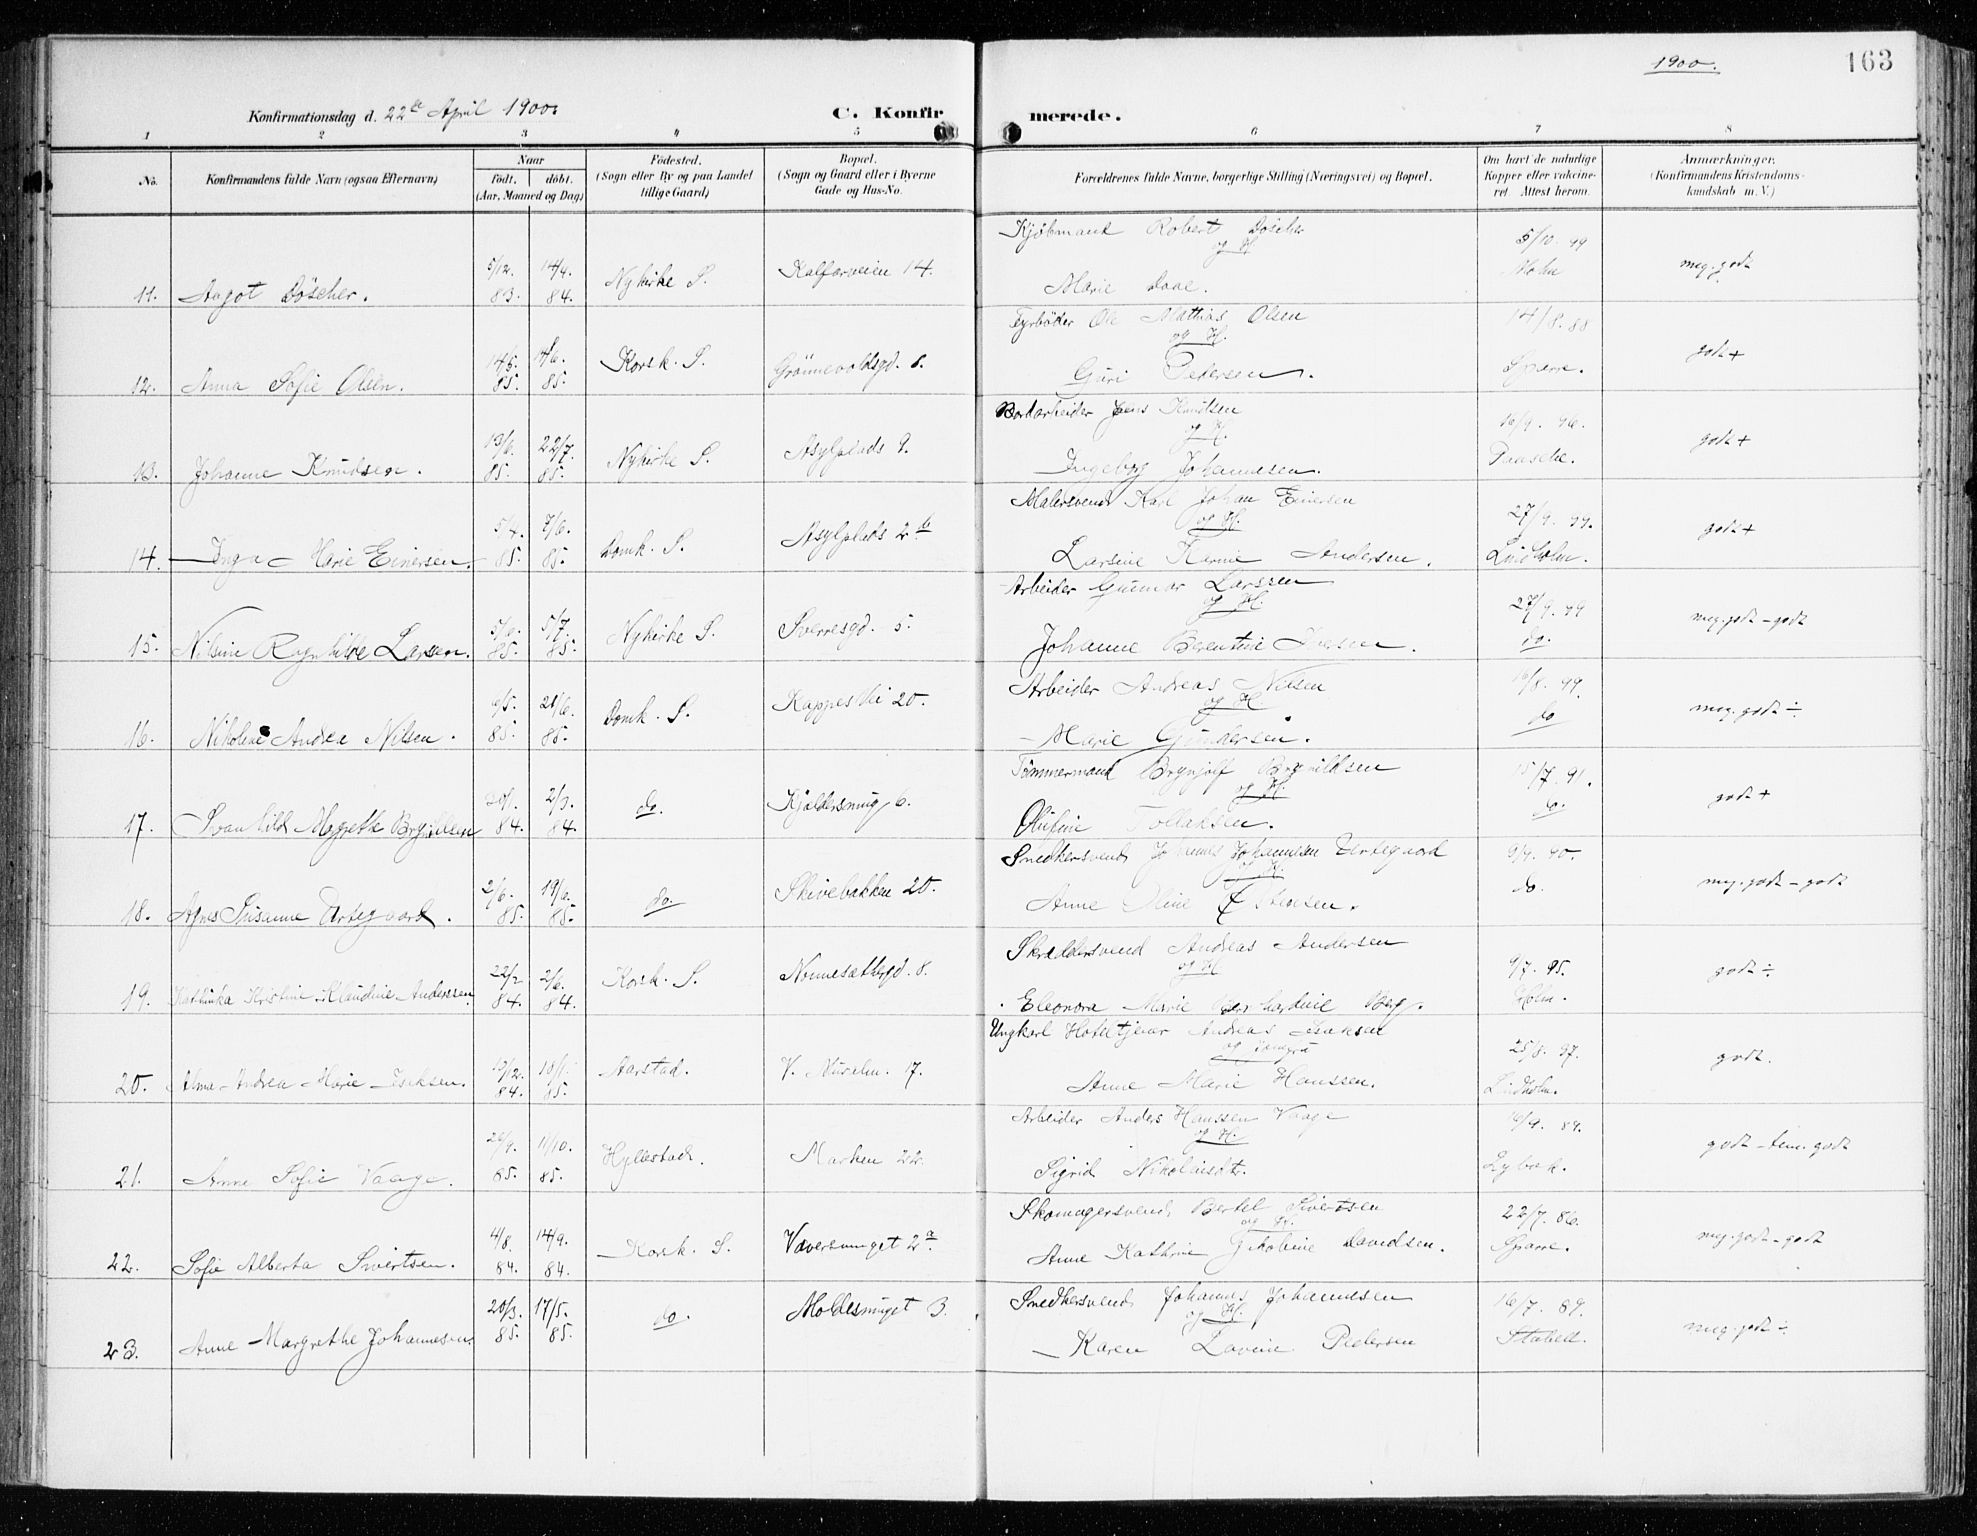 1900.
163
Konfirmationsdag d. 22de April 1900.
C. Konfirmerede.
1 2 3 4 5 6 7 8
No. Konfirmandens fulde Navn (ogsaa Efternavn) Naar født. døbt. (Aar, Maaned og Dag) Fødested. (Sogn eller By og paa Landet tillige Gaard) Bopæl. (Sogn og Gaard eller i Byerne Gade og Hus-No. Forældrenes fulde Navne, borgerlige Stilling (Næringsvei) og Bopæl. Om havt de naturlige Kopper eller vaccineret. Attest herom. Anmærkninger. (Konfirmandens Kristendomskundskab m. V.)
Kjøbmand Robert Döscher 5/10. 99
og H.
5/12. 14/4. Nykirke S. Kalfarveien 14. Mohn meg. godt
11. Aagot Döscher. 83. 84. Marie Daae.
Fyrbøder Ole Mathias Olsen 14/8. 88
og H.
14/5. 14/6. Korsk. S. Grønnevoldsgd. 8. godt +
12. Anna Sofie Olsen. 85. 85. Guri Pedersen. Sparre.
Bordarbeider Jens Knudsen 16/9. 96.
og H.
13/6. 22/7. Nykirke S. Asylplads 9. godt +
13. Johanne Knudsen. 85. 85. Ingeborg Johannesen. Paasche.
Malersvend Karl Johan Einersen 27/9. 99.
og H.
5/4. 7/6. Domk. S. Asylplads 2 b godt +
14. Inga Marie Einersen. 85. 85. Larsine Karine Andersen. Lindholm.
Arbeider Gunnar Larssen 27/9. 99
og H.
5/6. 5/7. Nykirke S. Sverresgd. 5. meg. godt - godt
15. Nilsine Ragnhilde Larsen. 85. 85. Johanne Berentine Iversen. do.
Arbeider Andreas Nilsen 16/8. 99.
og H.
9/5. 21/6. Domk. S. Kappesmei 20. meg. godt ÷
16. Nikoline Andrea Nilsen. 85. 85. Marie Gundersen. do
Tømmermand Brynjolf Brynildsen 15/7. 91.
og H.
30/1. 2/3. do. Kjeldersmug 6. godt +
17. Svanhild Magrethe Brynildsen 84. 84. Olufine Tollaksen. do.
Snedkersvend Johannes Johannesen Urtegaard 9/9. 90.
og H.
2/6. 19/6. do. Skivebakken 20. do. meg. godt - godt
18. Agnes Susanne Urtegaard. 85. 85. Anne Oline Estensen.
Skræddersvend Andreas Andersen
og H.
22/2 2/6. Korsk. S. Nonnesætergd. 8. 9/7. 95. godt ÷
19. Kathinka Kristine Klaudine Anderssen. 84. 84. Eleonora Marie Bernhardine Berg. Holm.
Ungkarl Hoteltjener Andreas Isaksen
og Pige
19/12. 18/1. Aarstad. V. Muralm. 17. 25/8. 97. godt.
20. Alma Andrea Marie Isaksen. 84. 85. Anne Marie Hanssen. Lindholm.
Arbeider Anders Hanssen Vaage 16/9. 89.
og H.
29/9. 11/10. Hyllestad. Marken 22. godt - tem. godt
21. Anne Sofie Vaage. 85. 85. Sigrid Nikolaisdtr. Lybek.
Skomagersvend Bertel Sivertsen 22/7. 86.
og H.
4/8. 14/9. Korsk. S. Væversmuget 2a. meg. godt - godt
22. Sofie Alberta Sivertsen. 84. 84. Anne Kathrine Jakobine Davidsen. Sparre.
Snedkersvend Johannes Johannesen 16/7. 89.
og H.
20/3. 17/5. do. Moldesmuget 3. meg. godt ÷
23. Anne Margrethe Johannesen. 85. 85. Karen Lovine Pedersen Stabell.